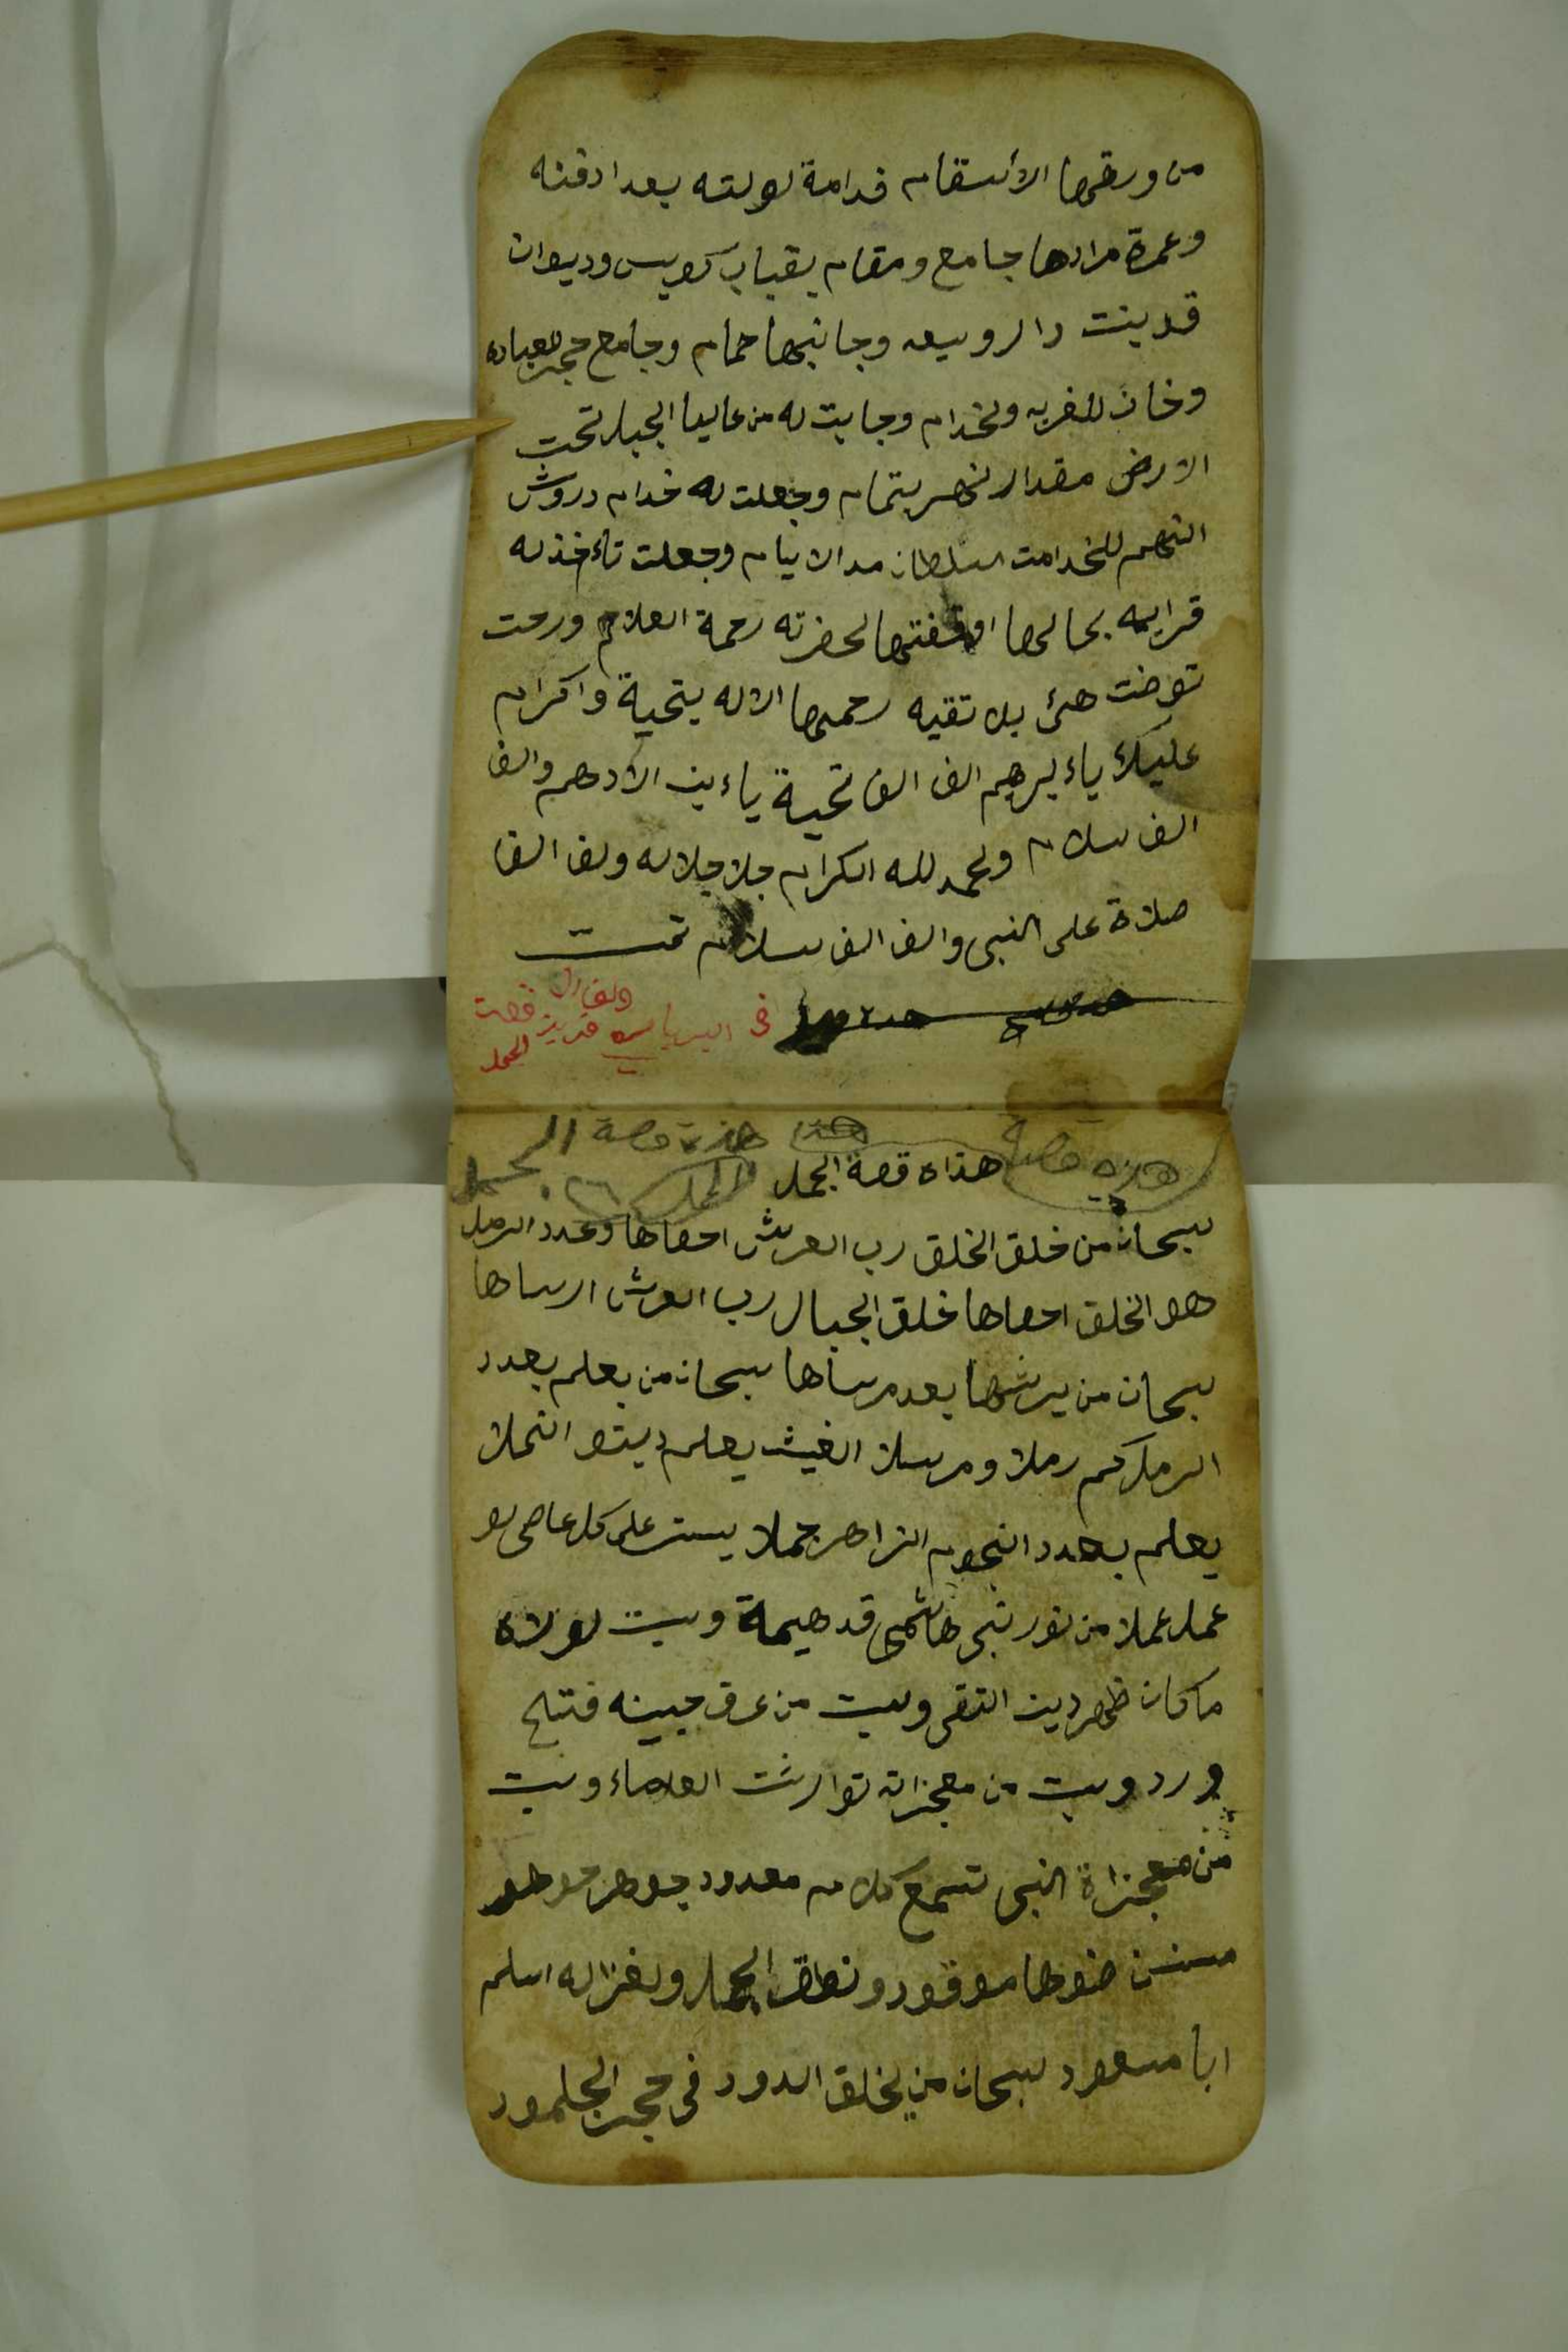 من ورقها الأسقام قدامة لولته بعدا دفنه
وعمرة مرادها جامع ومقام بقباب كويس وديوان
قد بنت دار وسعه وجانبها حمام وجامع حجر للعباده
وخان للغربه ولخدام وجابت له من عاليا الجبل تحت
الارض مقدار نهر بتمام وجعلت له خدام دروش
التهم للخدامت السلطان مد الايام وجعلت تأخذ له
قرايه بحالها اوقفتها لحضرته رحمة العلام ورحت
توفت هئ بلا تقيه رحمها الاله بتحية واكرام
عليك ياء برهيم الف الف تحية ياء بن الأدهم والف
الف سلام ولحمد لله الكرام جلا جلاله ولف الف
صلاة على النبي والف الف سلام تمت
في
قصت
الجمل
هذه قصة هذا هذة قصة الجمل
هذاه قصة الجمل
سبحان من خلق الخلق رب العرش احصاها وعدد الرمل
هو الخلق احصاها خلق الجبال رب العرش ارساها
سبحان من يرشها بعد مرساها سبحان من يعلم بعدد
الرمل كم رملا ومرسل الغيث يعلم ديتو النملا
يعلم بعدد النجوم الزاهر جملا يستر على كل عاصي لو
عمل عملا من نور نبي هاشمي قد هيمة وبيت لولاه
ما كان ظهر دين التقى وبيت من عرق جبينه فتتح
ورد وبيت من معجزاته توارثت العلاماء وبيت
من معجزاة النبي تسمع كلام معدود جوهر
ضوها موقود ونطق الجمل ولغزاله اسلم
ابا مسعود سبحان من يخلق الدود في حجر الجلمود